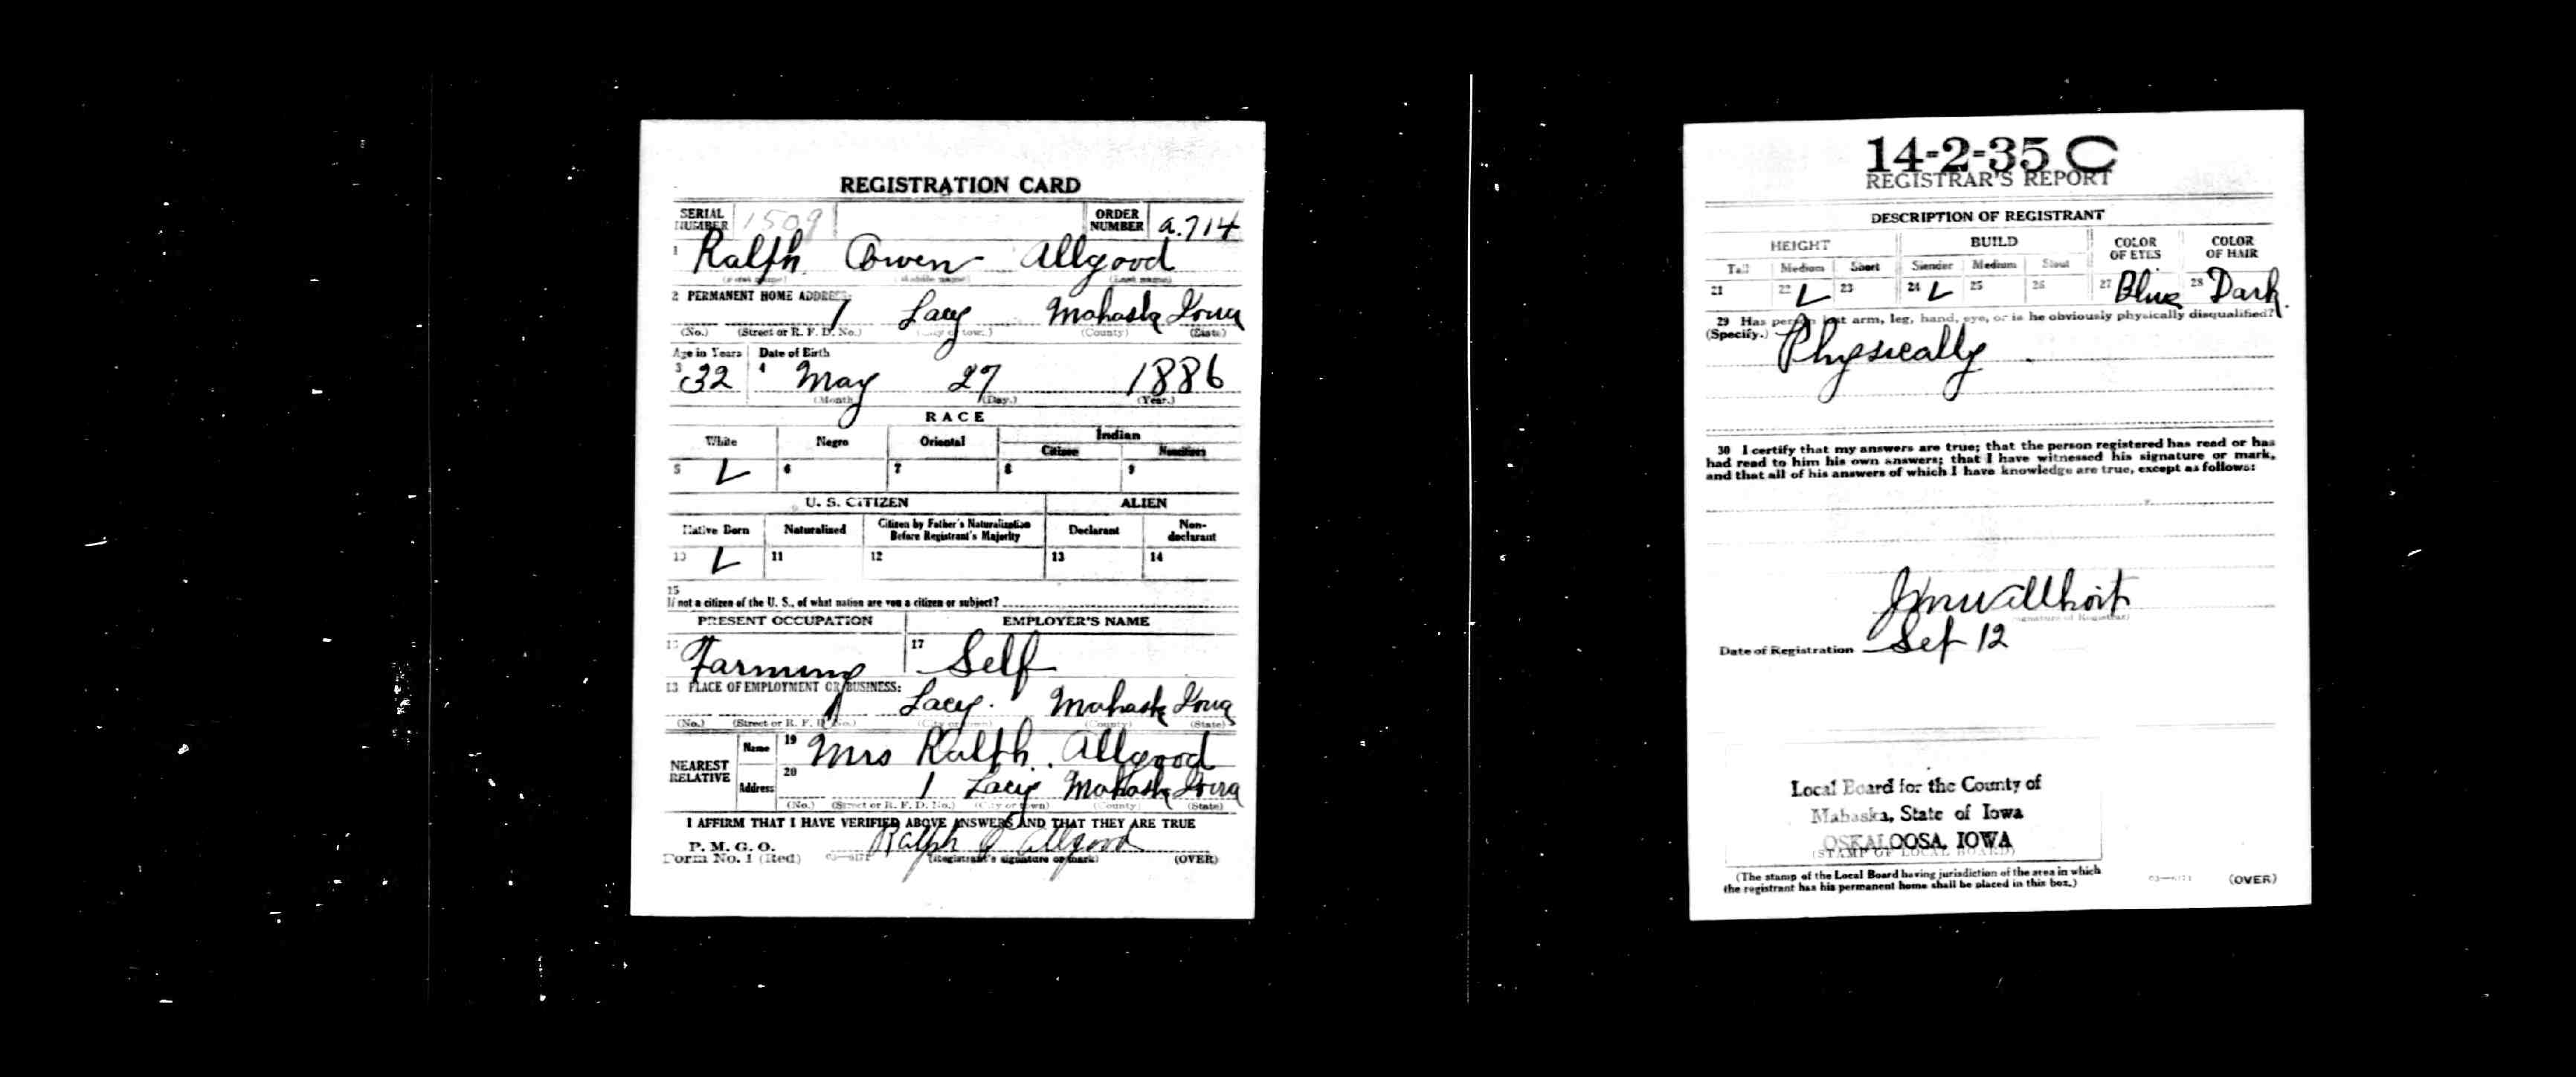 REGISTRATION CARD
SERIAL NUMBER 1509 ORDER NUMBER a.714
1 Ralph Owen Allgood
(First name) (Middle name) (Last name)
2 PERMANENT HOME ADDRESS:
1 Lacy Mahaska Iowa
(No.) (Street or R. F. D. No.) (City or town) (County) (State)
Age in Years Date of Birth
3 32 4 May 27 1886
(Month.) (Day.) (Year.)
RACE
White Negro Oriental Indian
Citizen Noncitizen
5 6 7 8 9
U. S. CITIZEN ALIEN
Native Born Naturalized Citizen by Father's Naturalization Before Registrant's Majority Declarant Non-declarant
10 11 12 13 14
15
If not a citizen of the U. S., of what nation are you a citizen or subject?
PRESENT OCCUPATION EMPLOYER'S NAME
16 Farming 17 Self
18 PLACE OF EMPLOYMENT OR BUSINESS:
1 Lacey. Mahaska Iowa
(No.) (Street or R. F. D. No.) (City or town) (County) (State)
NEAREST RELATIVE Name 19 Mrs Ralph. Allgood
Address 20 1 Lacey Mahaska Iowa
(No.) (Street or R. F. D. No.) (City or town) (County) (State)
I AFFIRM THAT I HAVE VERIFIED ABOVE ANSWERS AND THAT THEY ARE TRUE
P. M. G. O.
Form No. 1 (Red) 03—6171 Ralph O Allgood
(Registrant's signature or mark) (OVER)
14-2-35 C
REGISTRAR'S REPORT
DESCRIPTION OF REGISTRANT
HEIGHT BUILD COLOR OF EYES COLOR OF HAIR
Tall Medium Short Slender Medium Stout
21 22 23 24 25 26 27 Blue 28 Dark.
29 Has person lost arm, leg, hand, eye, or is he obviously physically disqualified?
(Specify.) Physically
30 I certify that my answers are true; that the person registered has read or has
had read to him his own answers; that I have witnessed his signature or mark,
and that all of his answers of which I have knowledge are true, except as follows:
(Signature of Registrar)
Date of Registration Sep 12
Local Board for the County of
Mahaska, State of Iowa
OSKALOOSA, IOWA
(STAMP OF LOCAL BOARD)
(The stamp of the Local Board having jurisdiction of the area in which
the registrant has his permanent home shall be placed in this box.)
03—6171 (OVER)